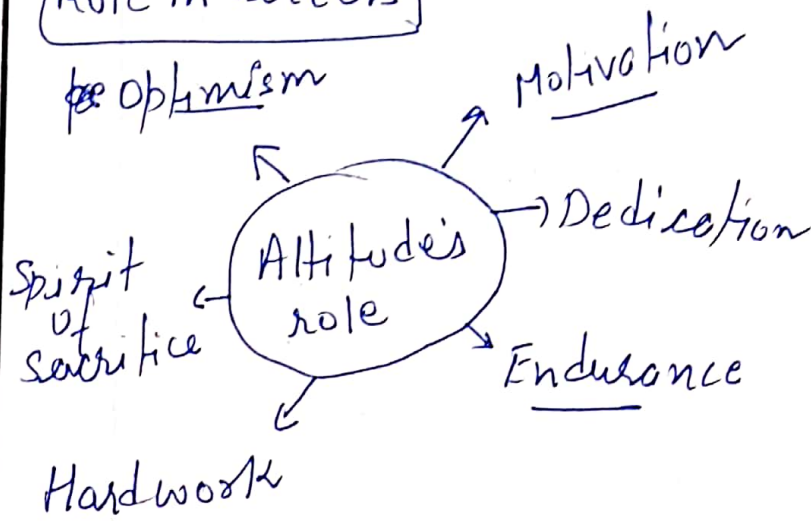 Optimism
Motivation
Dedication
Attitude's
role
Spirit
of
sacrifice
Endurance
Hardwork